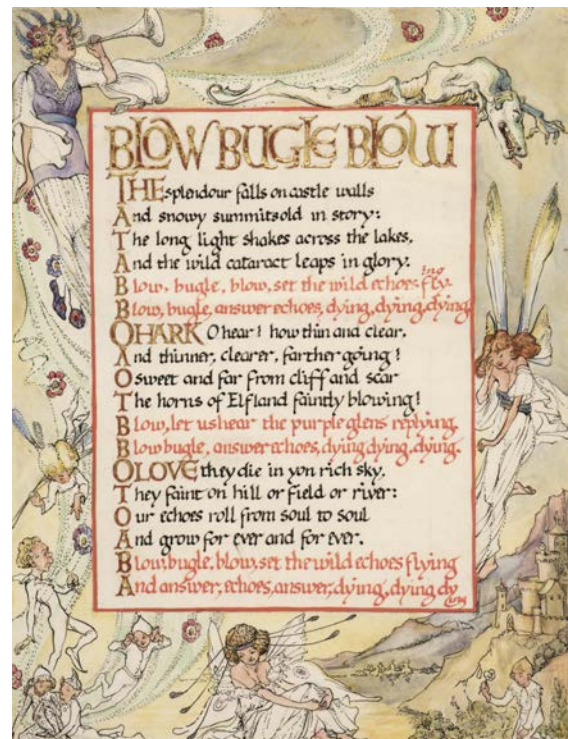 BLOW BUGLE BLOW
THE splendour falls on castle walls
And snowy summits old in story:
The long light shakes across the lakes,
And the wild cataract leaps in glory.
Blow, bugle, blow, set the wild echoes flying
Blow, bugle, answer echoes, dying, dying, dying
O HARK O hear! how thin and clear,
And thinner, clearer, farther going!
O sweet and far from cliff and scar
The horns of Elfland faintly blowing!
Blow, let us hear the purple glens replying.
Blow bugle, answer echoes, dying dying, dying.
O LOVE they die in yon rich sky,
They faint on hill or field or river:
Our echoes roll from soul to soul
And grow for ever and for ever.
Blow, bugle, blow, set the wild echoes flying
And answer, echoes, answer, dying, dying dying